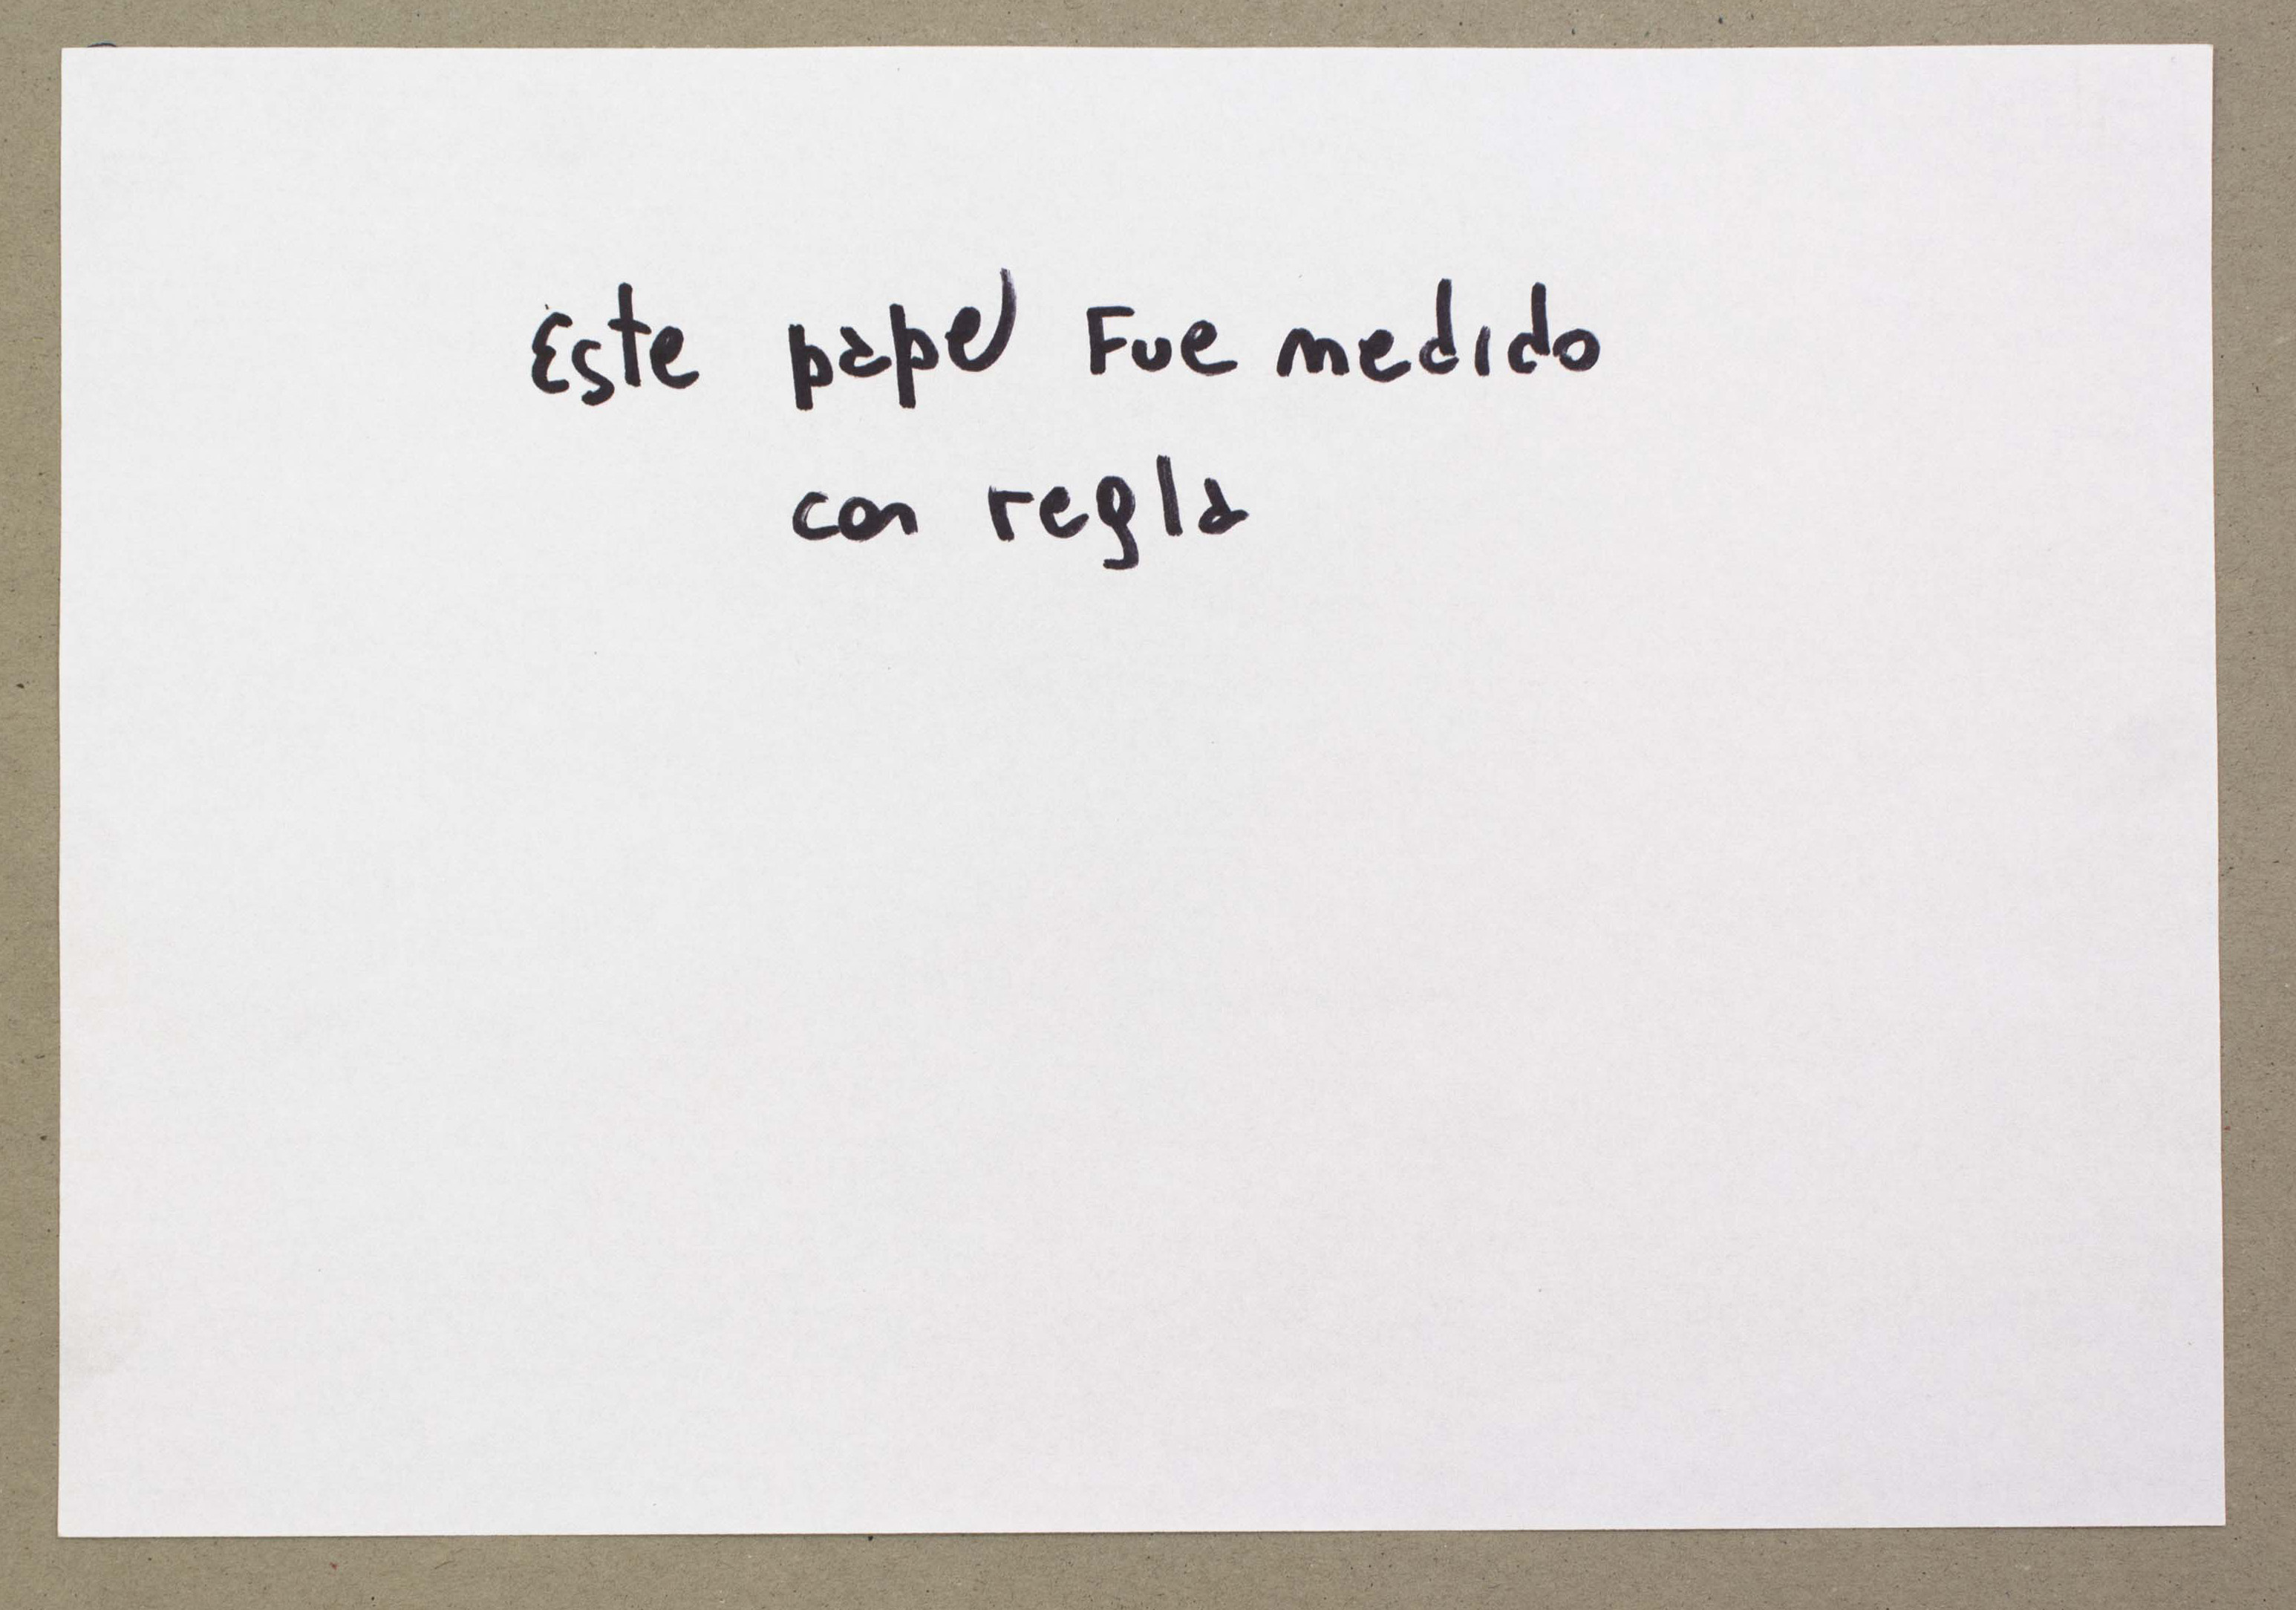 Este papel Fue medido
con regla